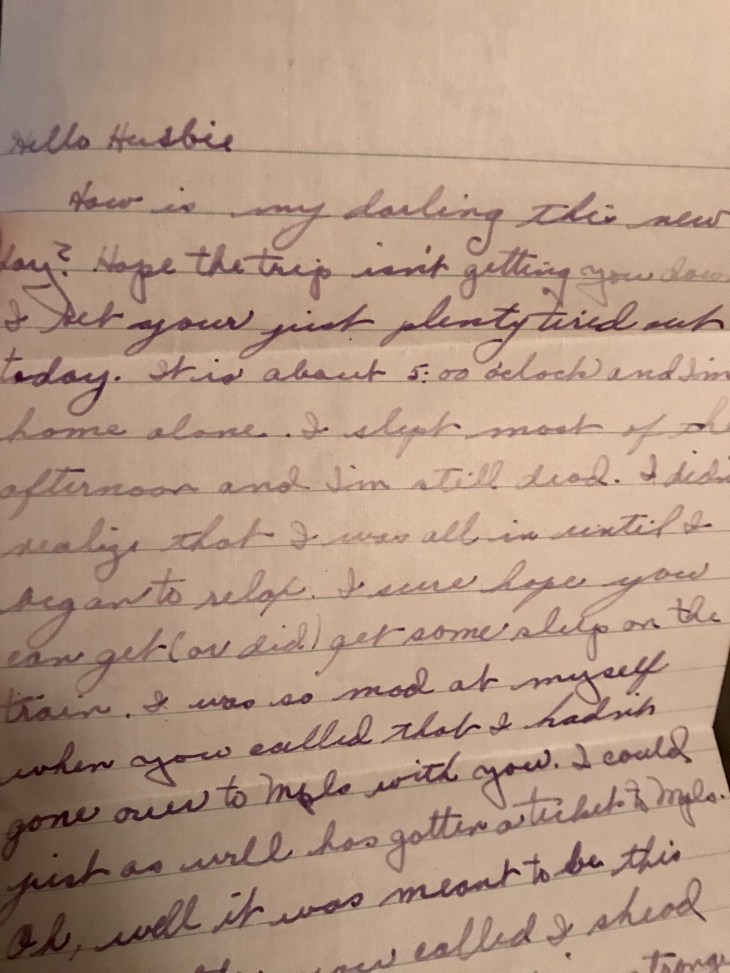 Hello Husbie
How is my darling this new
day? Hope the trip isn't getting you down
I bet your just plenty tired out
today. It is about 5:00 o'clock and I'm
home alone. I slept most of the
afternoon and I'm still dead. I didn
realize that I was all in until I
began to relax. I sure hope you
can get (or did) get some sleep on the
train. I was so mad at myself
when you called that I hadn't
gone over to Mpls with you. I could
just as well has gotten a ticket to Mpls.
Oh, well it was meant to be this
you called I shead